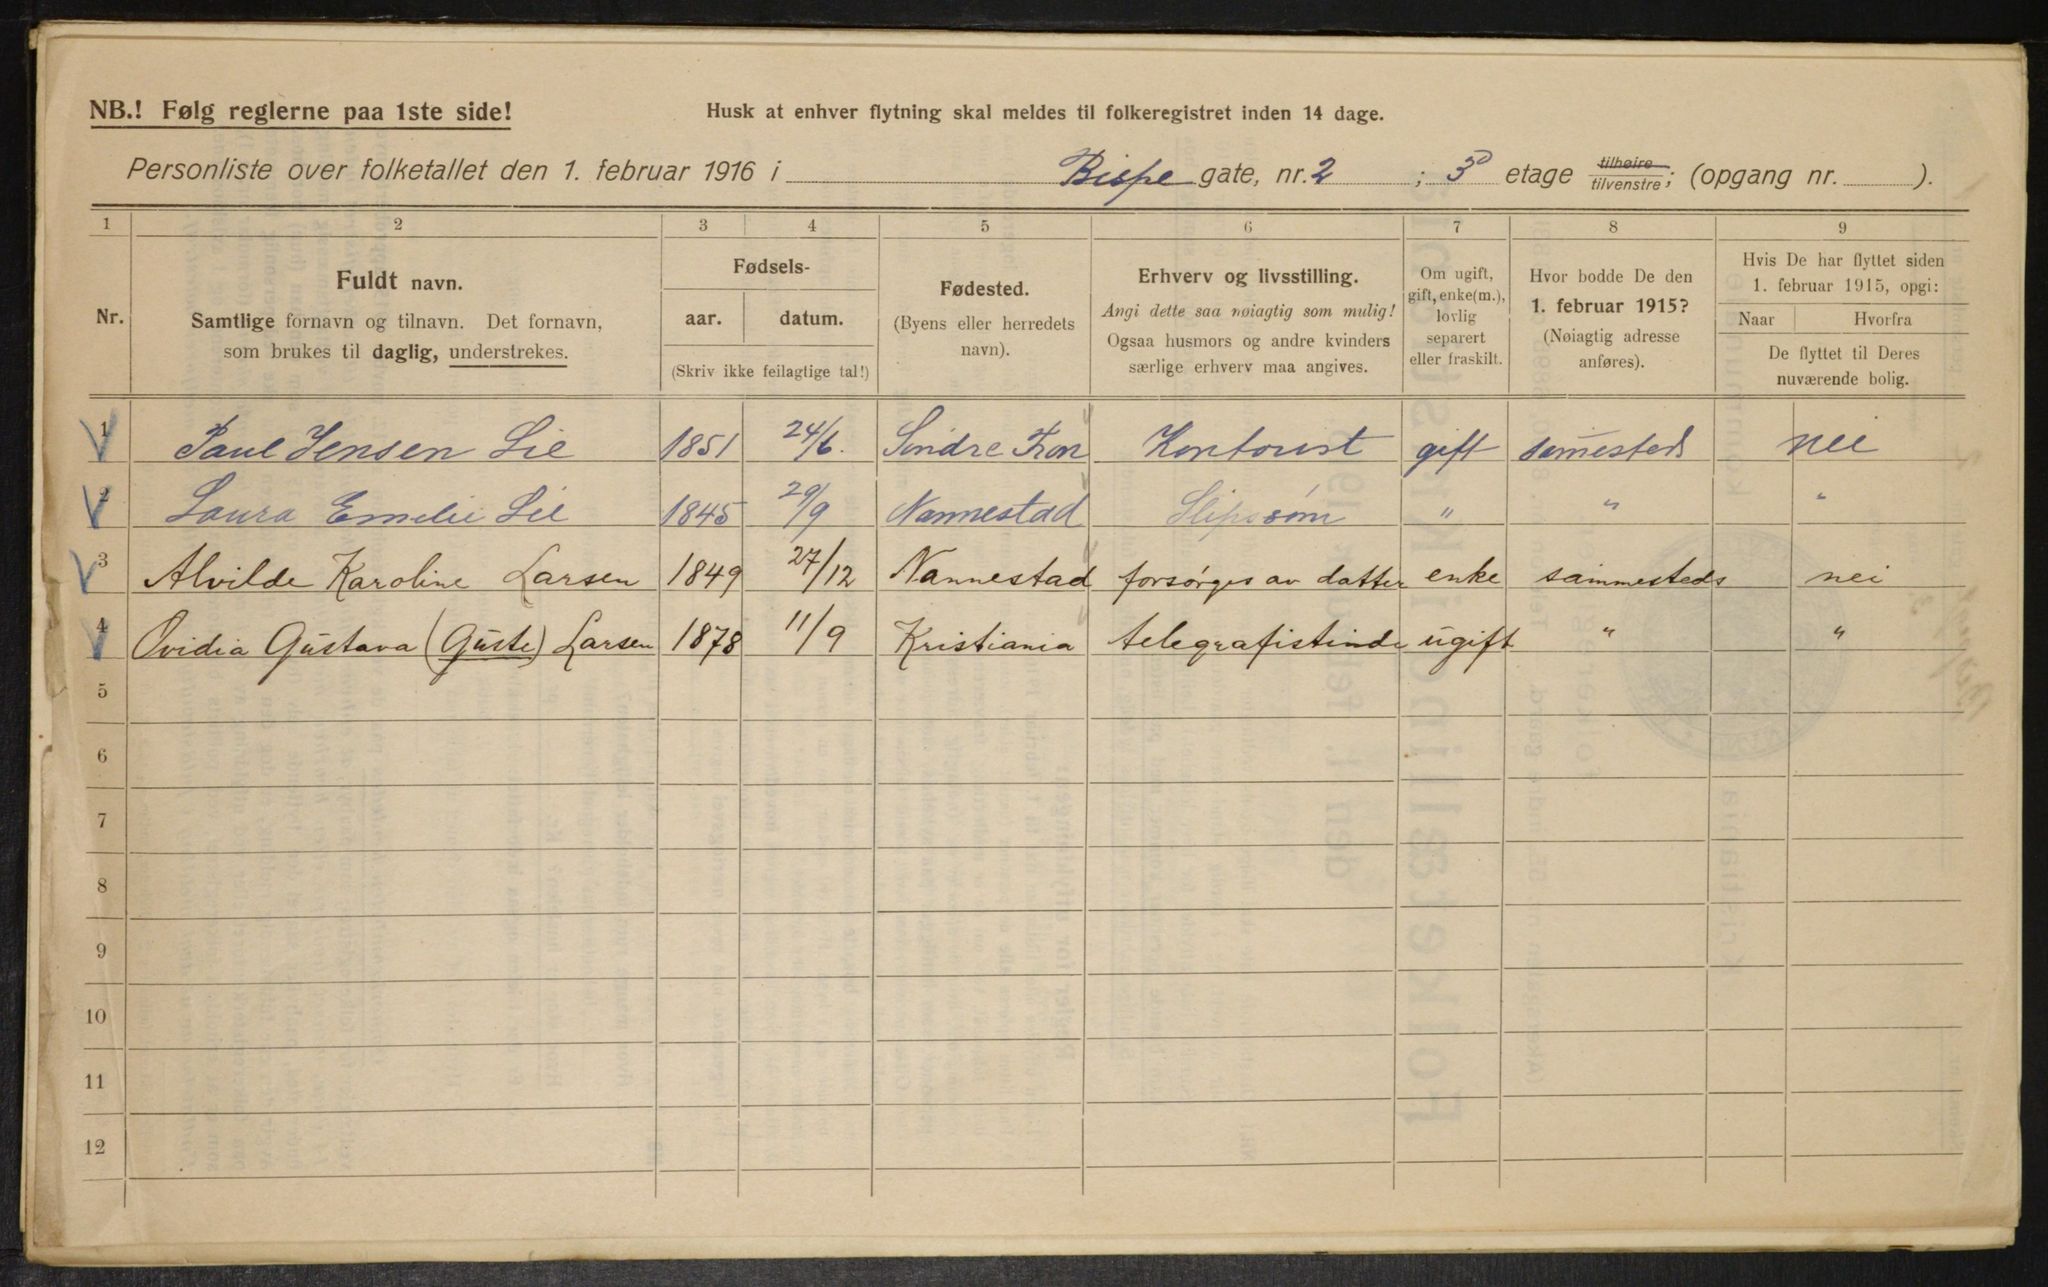 NB.! Følg reglerne paa 1ste side! Husk at enhver flytning skal meldes til folkeregistret inden 14 dage.
Personliste over folketallet den 1. februar 1916 i Bispe gate, nr. 2 ; 3 etage tilhøire/tilvenstre; (opgang nr. ).
1 2 3 4 5 6 7 8 9
Nr.
Fuldt navn.
Samtlige fornavn og tilnavn. Det fornavn,
som brukes til daglig, understrekes.
Fødsels-
aar. datum.
(Skriv ikke feilagtige tal!)
Fødested.
(Byens eller herredets
navn).
Erhverv og livsstilling.
Angi dette saa nøiagtig som mulig!
Ogsaa husmors og andre kvinders
særlige erhverv maa angives.
Om ugift,
gift, enke(m.),
lovlig
separert
eller fraskilt.
Hvor bodde De den
1. februar 1915?
(Nøiagtig adresse
anføres).
Hvis De har flyttet siden
1. februar 1915, opgi:
Naar Hvorfra
De flyttet til Deres
nuværende bolig.
1 Paul Jensen Lie 1851 24/6. Søndre Fron Kontorist gift sammesteds nei
2 Laura Emelie Lie 1845 29/9 Nannestad " " "
3 Alvilde Karoline Larsen 1849 27/12 Nannestad forsørges av datter enke sammesteds nei
4 Ovidia Gustava (Guste) Larsen 1878 11/9 Kristiania telegrafistinde ugift " "
5
6
7
8
9
10
11
12